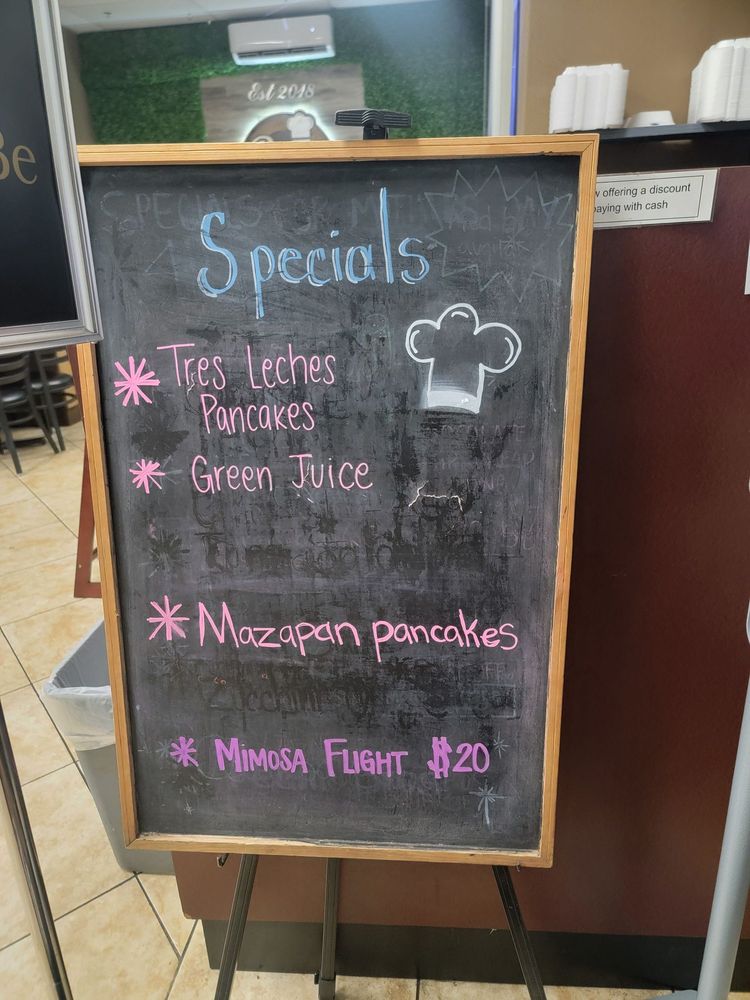 Be
Est 2018
w offering a discount
paying with cash
Specials
* Tres Leches
Pancakes
* Green Juice
* Mazapan pancakes
* Mimosa Flight $20